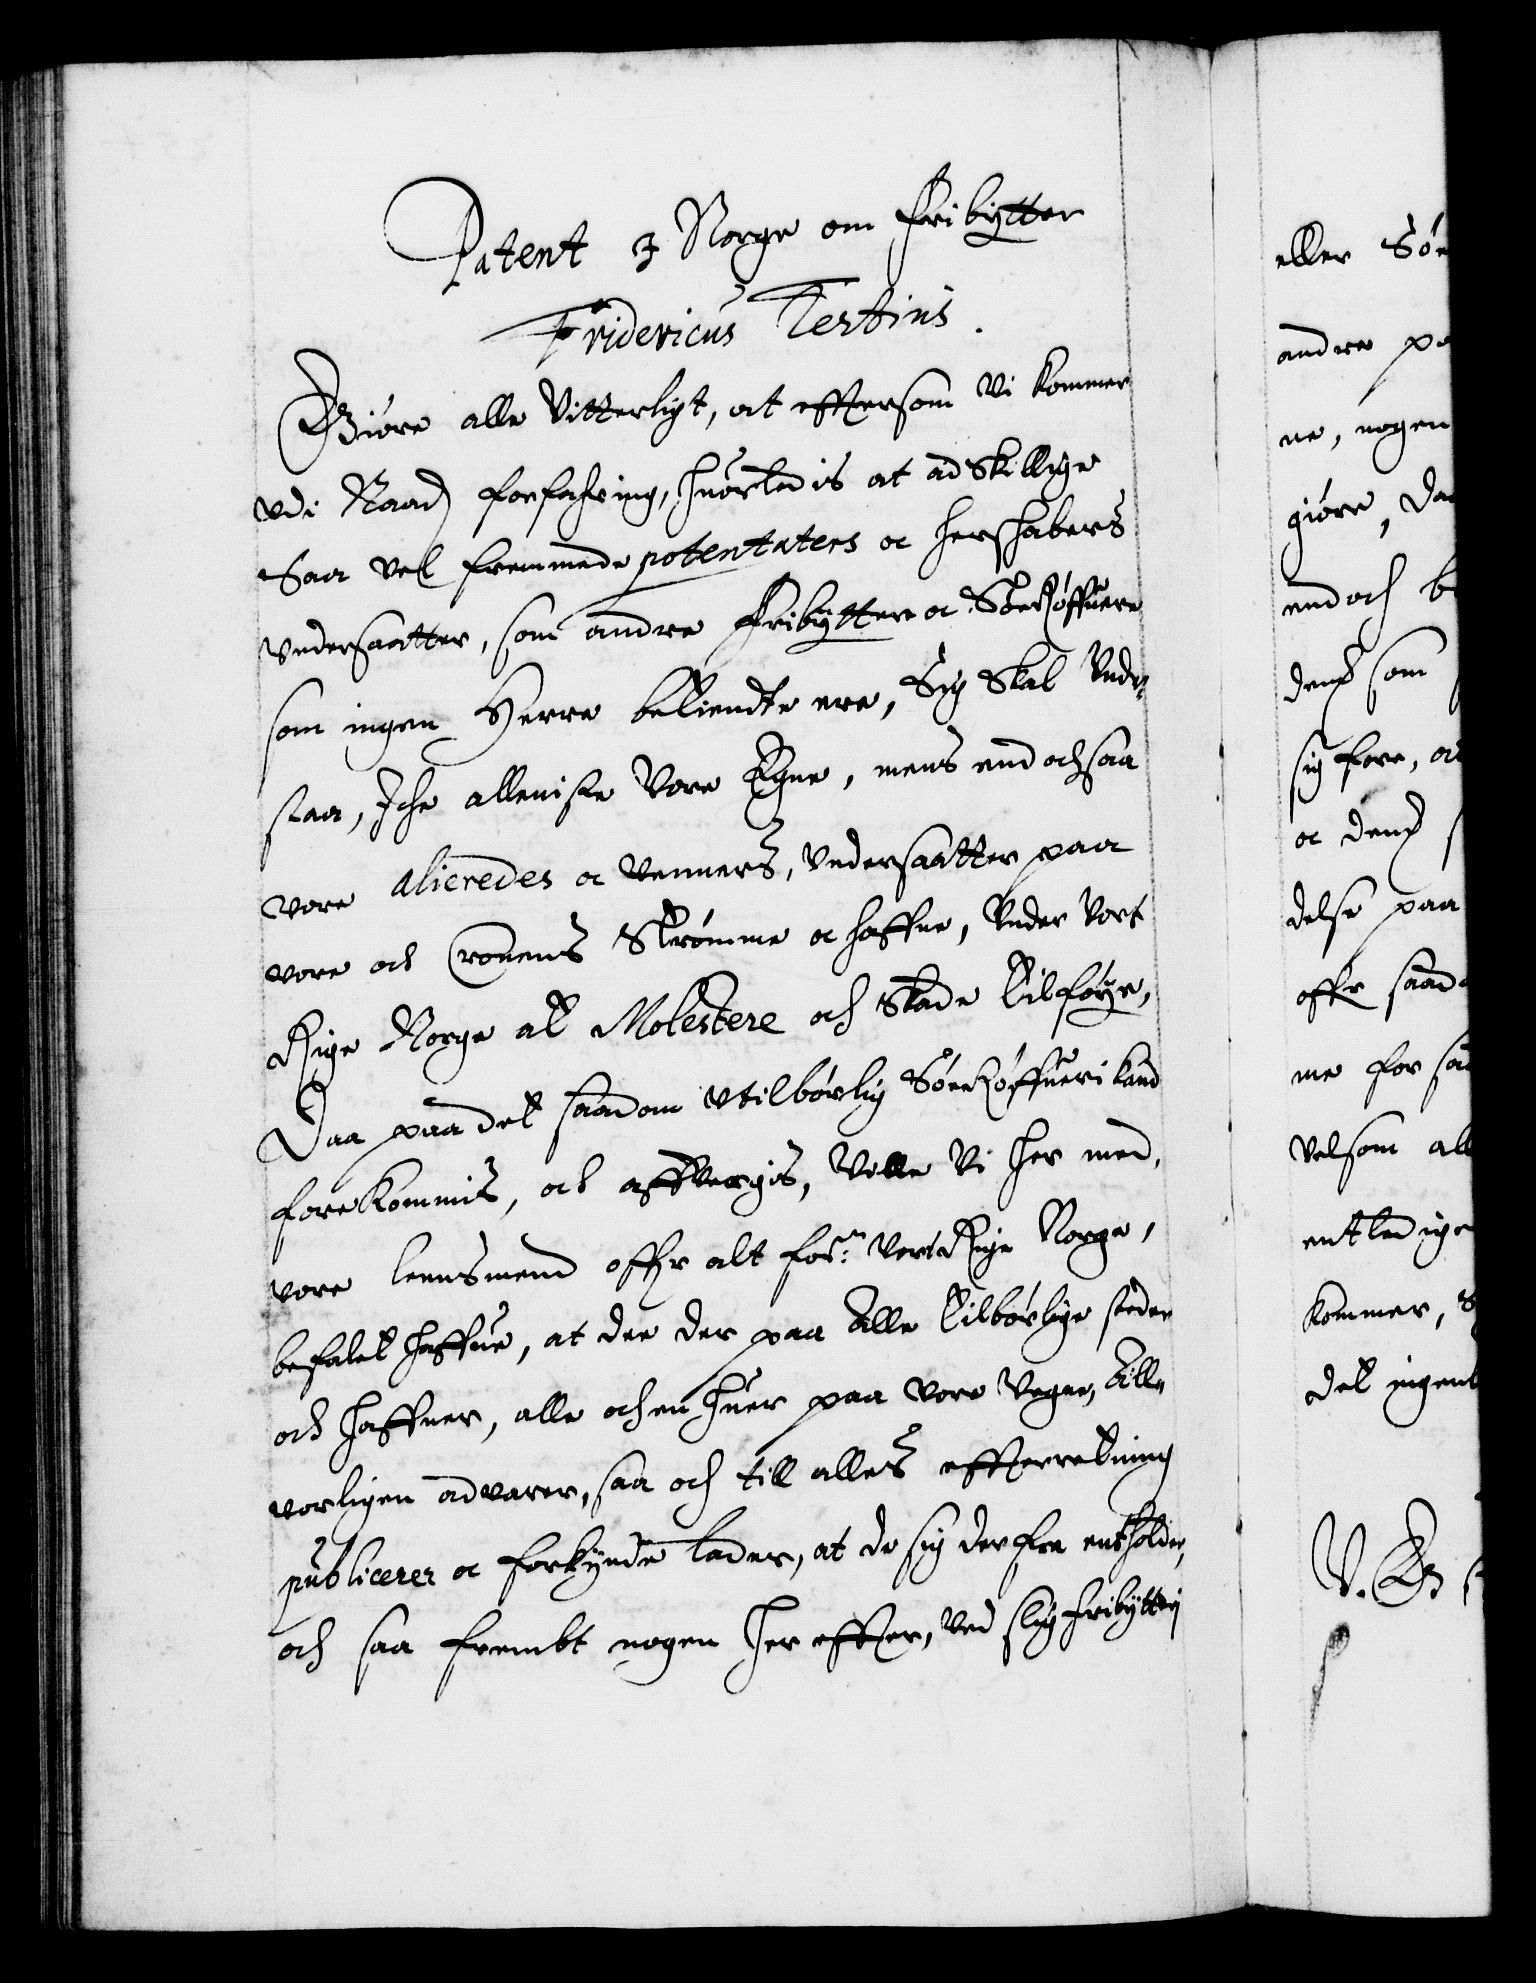 Patent J Norge om fribytter
Fridericus Tertius.
Giöre alle Vitterligt, at effter som Vi kommer
udi Naad forfahring, huorledis at adskillige
Saa vel fremmede potentaters oc herskabers
undersaatter, som andre fribyttere oc Söeröffuere
som ingen Herre bekiendte ere, Sig skal Under
staa, Iche alleniste Vore Egne, mens end ochsaa
vore alieredes oc venners, undersaatter paa
vore och Cronens Strömme oc haffne, Under Vort
Rige Norge at Molestere och skade tilföye,
Daa paa det saadan utilbörlig Söeröffueri kand
forekommis, och affvergis, Ville Vi her med,
vore lensmend offr alt forne: vort Rige Norge,
befalet haffue, at dee der paa alle tilbörlige steder
och haffner, alle och en huer paa vore vegne, Alle
vorligen advarer, saa och till alles effterretning
publicerer oc forkynde lader, at de sig derfra entholder,
och saa frembt nogen her effter, ved slig fribytterj
eller Söe
andre pa
ne, nogen
giöre, da
endoch b
dend som
sig fore, oc
oc dend s
delse paa
offr saad
me for saa
velsom all
entledige
kommer, S
det ingenl